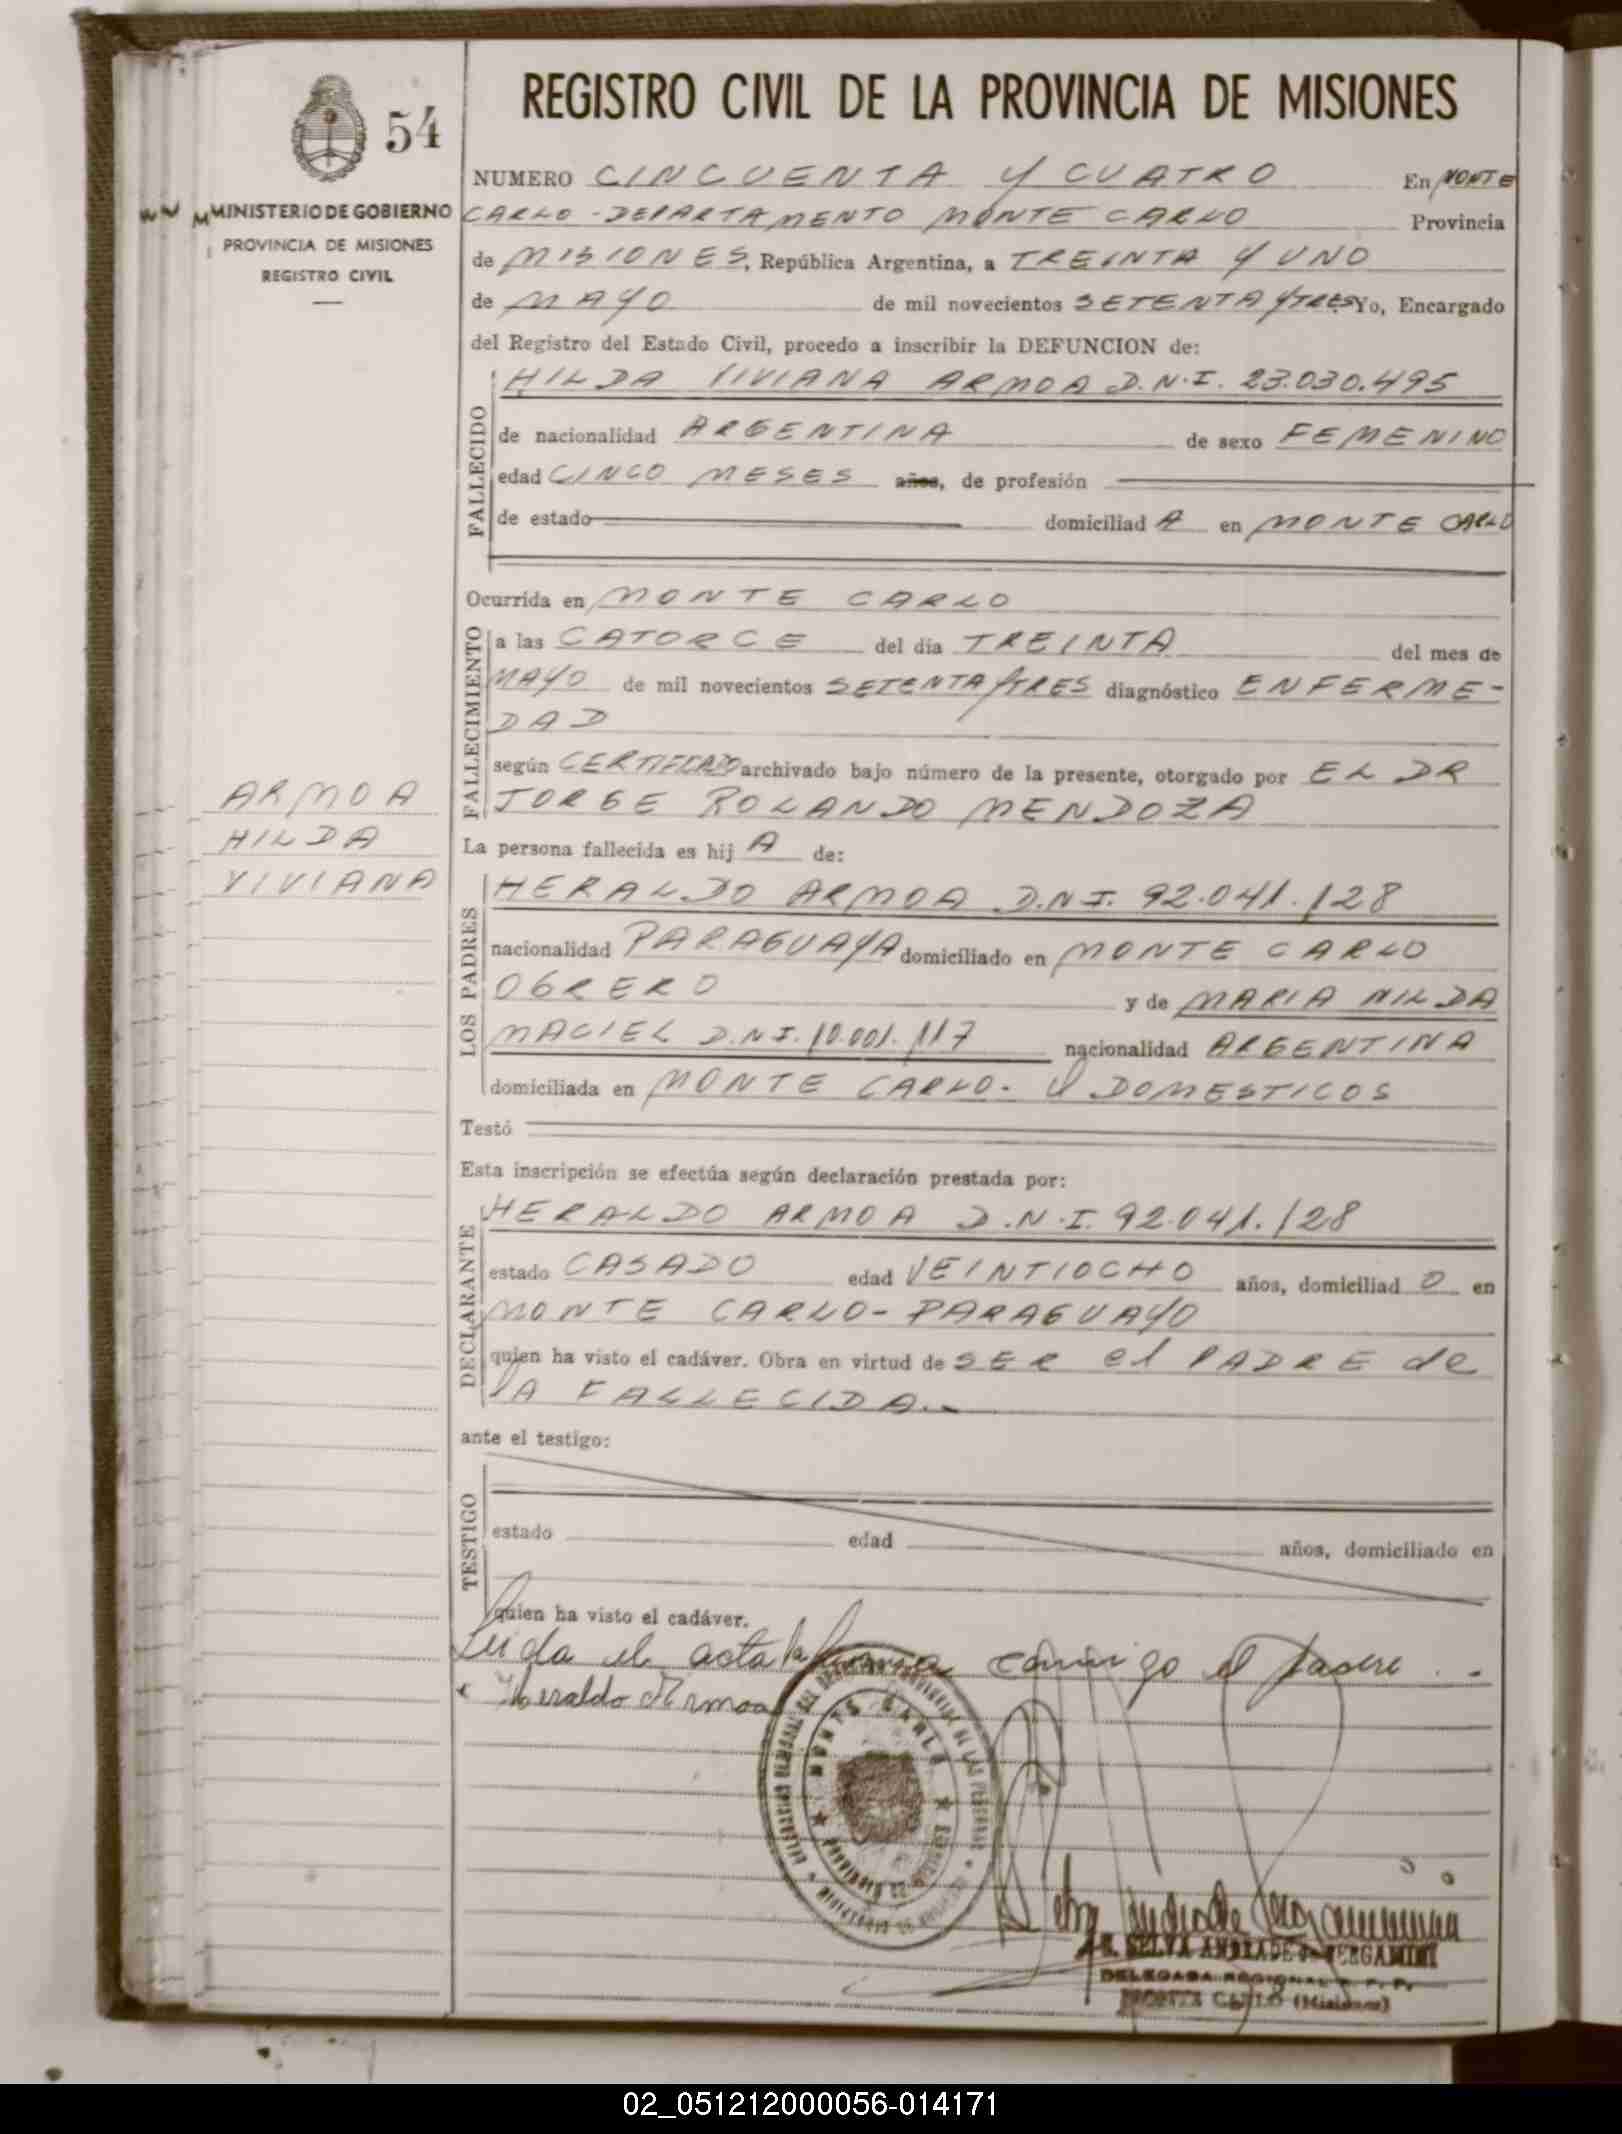 REGISTRO CIVIL DE LA PROVINCIA DE MISIONES
54
MINISTERIO DE GOBIERNO
PROVINCIA DE MISIONES
REGISTRO CIVIL
NUMERO CINCUENTA Y CUATRO En MONTE
CARLO - DEPARTAMENTO MONTE CARLO Provincia
de MISIONES, República Argentina, a TREINTA Y UNO
de MAYO de mil novecientos SETENTA Y TRES Yo, Encargado
del Registro del Estado Civil, procedo a inscribir la DEFUNCION de:
FALLECIDO
HILDA VIVIANA ARMOA D.N.I. 23.030.495
de nacionalidad ARGENTINA de sexo FEMENINO
edad CINCO MESES años, de profesión
de estado domiciliad A en MONTE CARLO
Ocurrida en MONTE CARLO
FALLECIMIENTO
a las CATORCE del día TREINTA del mes de
MAYO de mil novecientos SETENTA Y TRES diagnóstico ENFERME-
DAD
según CERTIFICADO archivado bajo número de la presente, otorgado por EL DR
JORGE ROLANDO MENDOZA
ARMOA
HILDA
VIVIANA
La persona fallecida es hij A de:
LOS PADRES
HERALDO ARMOA D.N.I. 92.041.128
nacionalidad PARAGUAYA domiciliado en MONTE CARLO
OBRERO y de MARIA NILDA
MACIEL D.N.I. 10.001.117 nacionalidad ARGENTINA
domiciliada en MONTE CARLO - Q DOMESTICOS
Testó
Esta inscripción se efectúa según declaración prestada por:
DECLARANTE
HERALDO ARMOA D.N.I. 92.041.128
estado CASADO edad VEINTIOCHO años, domiciliad O en
MONTE CARLO - PARAGUAYO
quien ha visto el cadáver. Obra en virtud de SER el PADRE de
lA FALLECIDA.-
ante el testigo:
TESTIGO
estado edad años, domiciliado en
quien ha visto el cadáver.
Leida el acta la firma conmigo el padre . -
Heraldo Armoa
MONTE CARLO
SELVA ANDRADE de BERGAMINI
DELEGADA REGIONAL R. P. P.
MONTE CARLO (Misiones)
02_051212000056-014171